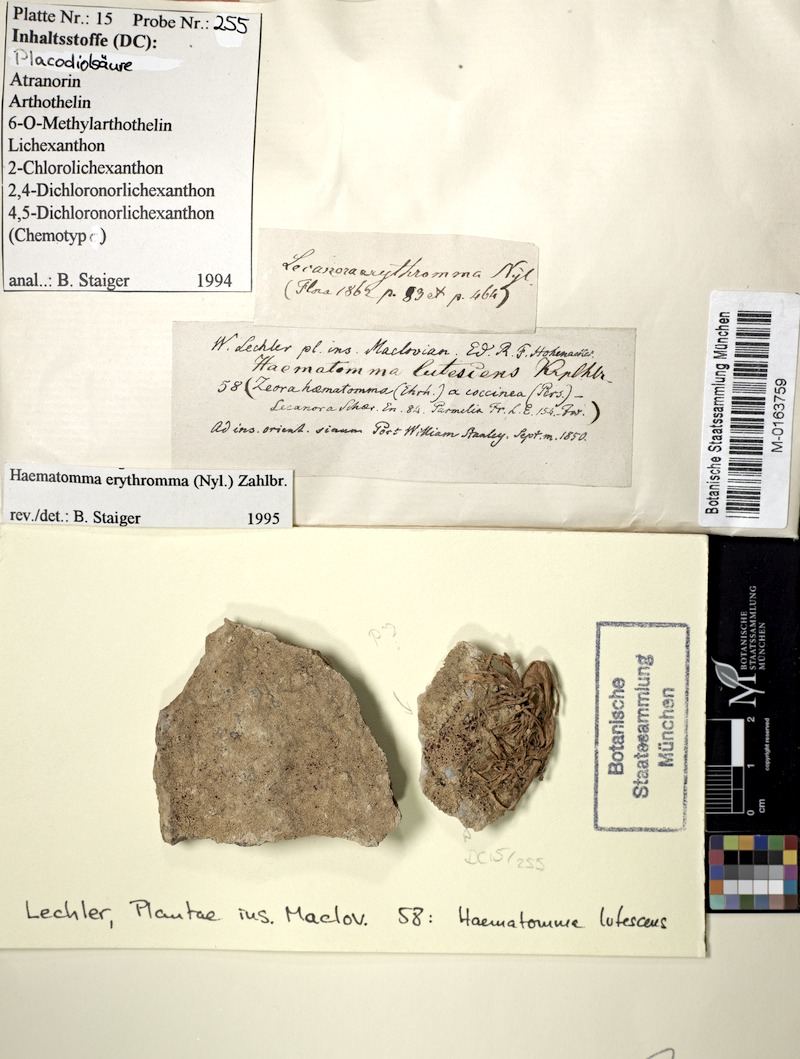 Platte Nr.: 15 Probe Nr.: 255
Inhaltsstoffe (DC):
Placodiolsäure
Atranorin
Arthothelin
6-O-Methylarthothelin
Lichexanthon
2-Chlorolichexanthon
2,4-Dichloronorlichexanthon
4,5-Dichloronorlichexanthon
(Chemotyp )
anal..: B. Staiger 1994
Lecanora erythromma Nyl.
(Flora 1862 p. 83 et p. 464)
W. Lechler pl. ins. Maclovian. Ed. R. F. Hohenacker.
Haematomma lutescens Krplhbr.
58 (Zeora hæmatomma (Ehrh.) α coccinea (Pers) –
Lecanora Schær. En. 84. Parmelia Fr. L. E. 154.)
Ad ins. orient. sinum Port William Stanley. Sept. m. 1850.
Haematomma erythromma (Nyl.) Zahlbr.
rev./det.: B. Staiger 1995
Botanische Staatssammlung München
M-0163759
DC15/255
Botanische
Staatssammlung
München
BOTANISCHE
STAATSSAMMLUNG
MÜNCHEN
0 1 2
cm
copyright reserved
Lechler, Plantae ins. Maclov. 58: Haematomma lutescens